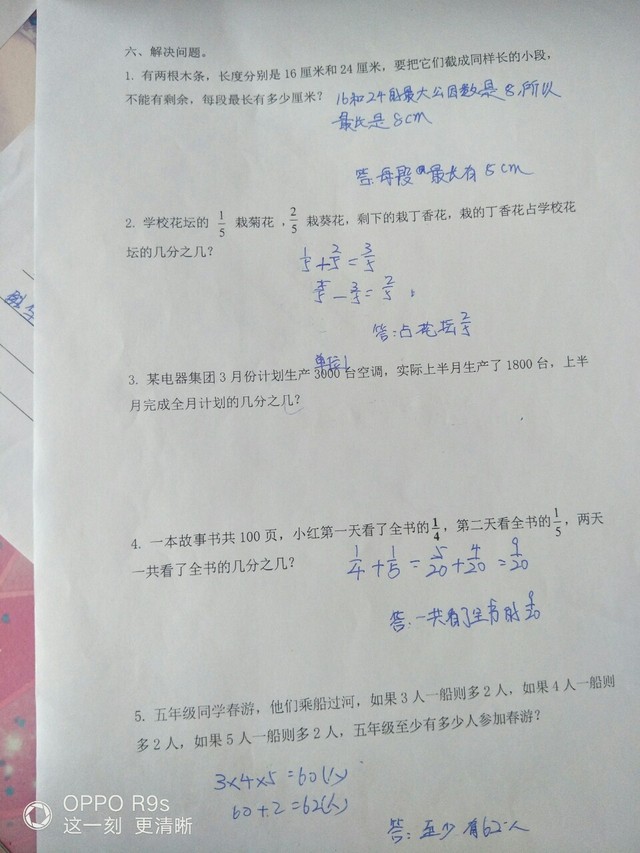 六、解决问题。
1. 有两根木条，长度分别是 16 厘米和 24 厘米，要把它们截成同样长的小段，
不能有剩余，每段最长有多少厘米？ 16和24的最大公因数是8,所以
最长是8cm
答:每段最长有 8cm
2. 学校花坛的 1/5 栽菊花，2/5 栽葵花，剩下的栽丁香花，栽的丁香花占学校花
坛的几分之几？
1/5+2/5=3/5
5/5-3/5=2/5
答:占花坛2/5
3. 某电器集团 3 月份计划生产 3000 台空调，实际上半月生产了 1800 台，上半
月完成全月计划的几分之几？
4. 一本故事书共 100 页，小红第一天看了全书的1/4，第二天看全书的1/5，两天
一共看了全书的几分之几？
1/4+1/5=5/20+4/20=9/20
答:一共看了全书的9/20
5. 五年级同学春游，他们乘船过河，如果 3 人一船则多 2 人，如果 4 人一船则
多 2 人，如果 5 人一船则多 2 人，五年级至少有多少人参加春游？
3×4×5=60(人)
60+2=62(人)
答:至少有62人
OPPO R9s
这一刻 更清晰